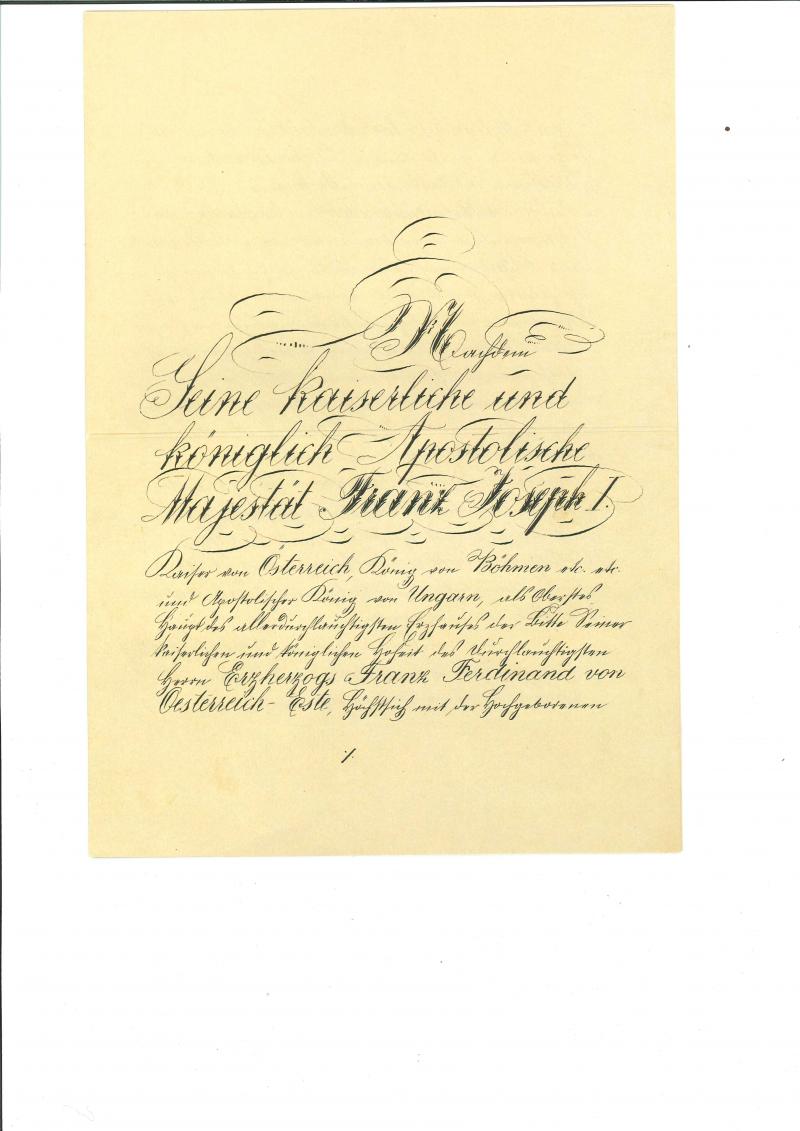 Nachdem
Seine kaiserliche und
königlich Apostolische
Majestät Franz Joseph I.
Kaiser von Österreich, König von Böhmen etc. etc.
und Apostolischer König von Ungarn, als Oberstes
Haupt des allerdurchlauchtigsten Erzhauses der Bitte Seiner
kaiserlichen und königlichen Hoheit des Durchlauchtigsten
Herrn Erzherzogs Franz Ferdinand von
Oesterreich-Este, Höchstsich mit der Hochgeborenen
./.